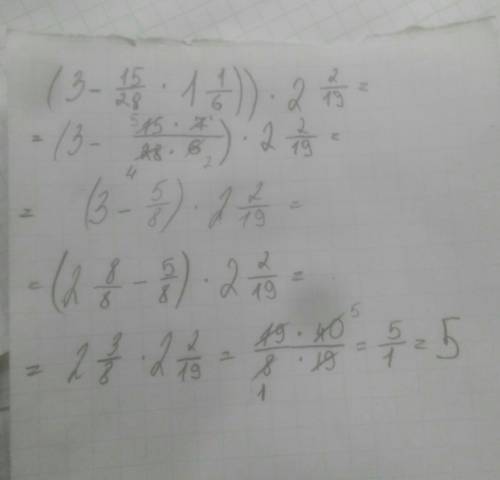 (3 - 15/28 · 1 1/6)) · 2 2/19 =
= (3 - 5 15 · 7 1 / 4 28 · 6 2) · 2 2/19 =
= (3 - 5/8) · 2 2/19 =
= (2 8/8 - 5/8) · 2 2/19 =
= 2 3/8 · 2 2/19 = 19 · 40 5 / 8 1 · 19 = 5/1 = 5